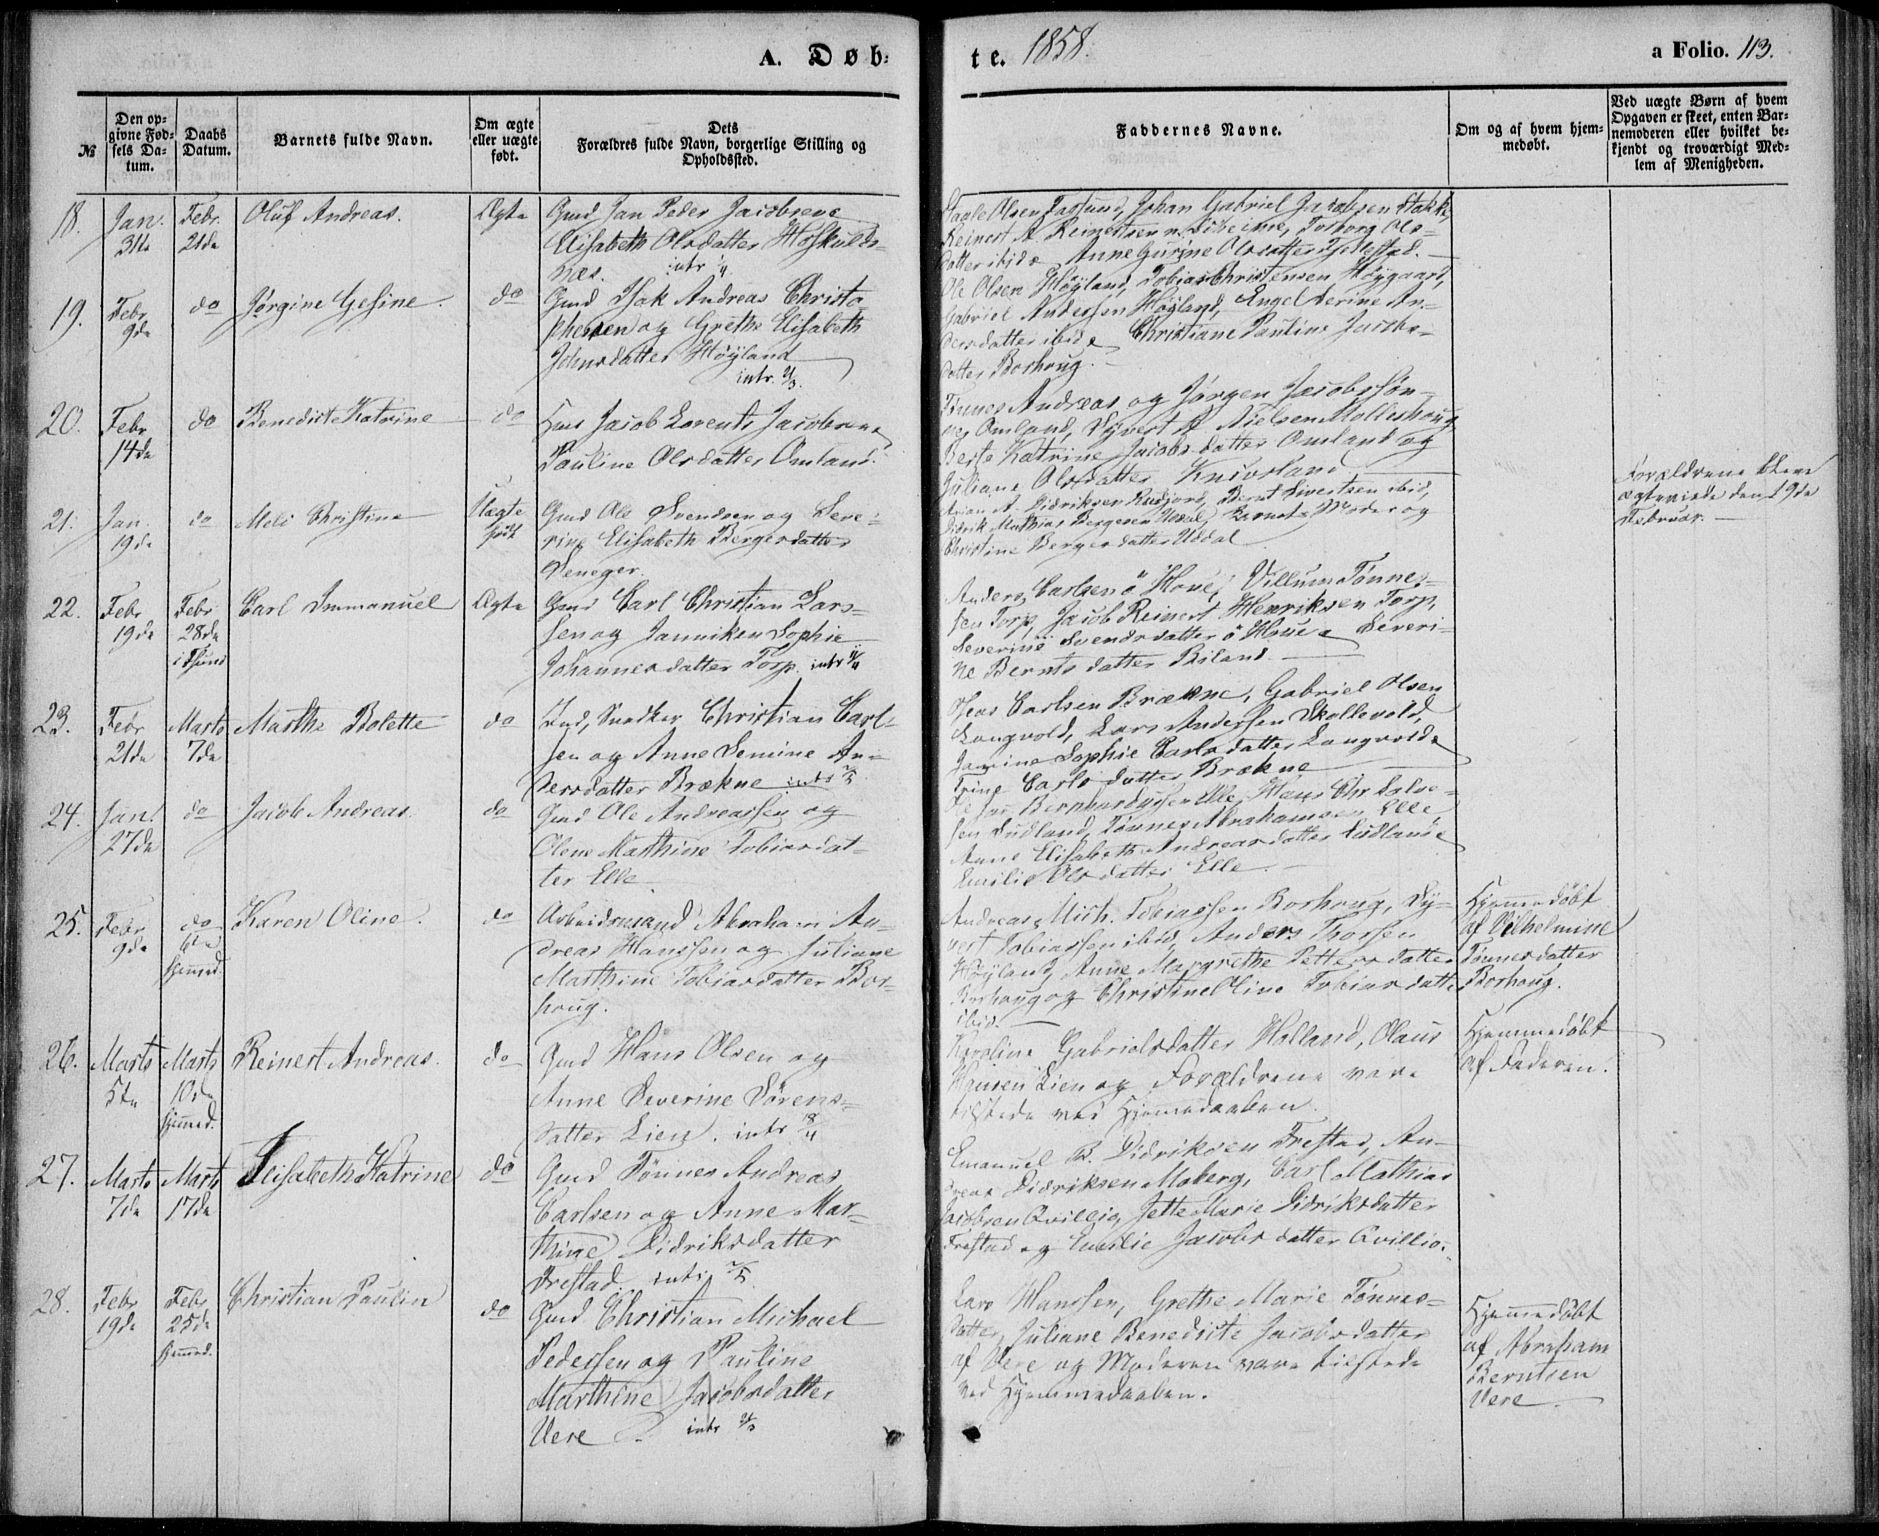 A. Døb-
te. 1858.
a Folio. 113.
№
Den op-
givne Fød-
sels Da-
tum.
Daabs
Datum.
Barnets fulde Navn.
Om ægte
eller uægte
født.
Dets
Forældres fulde Navn, borgerlige Stilling og
Opholdssted.
Faddernes Navne.
Om og af hvem hjem-
medøbt.
Ved uægte Børn af hvem
Opgaven er skeet, enten Bar-
nemoderen eller hvilket be-
kjendt og troværdigt Med-
lem af Menigheden.
18. Jan. 31te Febr. 21de Oluf Andreas. Ægte
Gmd Jan Peder Jacobsen
Elisabeth Olsdatter Høskulds-
næs. intr
Olsen Johan Gabriel Jacobsen
Reinert A. Reinertsen Torborg Ols-
datter ibid Anne Gurine Olsdatter
19. Febr 9de do Jørgine Gesine. do
Gmd Isak Andreas Christo-
phersen og Grethe Elisabeth
Johnsdatter Høyland
intr.
Ole Olsen Høyland, Tobias Christensen Høygaard,
Gabriel Andersen Høyland, Engel Serine An-
dersdatter ibid Christiane Pauline Jacobs-
datter Borhoug.
20. Febr 14de do Benedicte Katrine do
Huus Jacob Lorents Jacobsen
Pauline Olsdatter Omland.
Tønnes Andreas og Jørgen Jacobssøn-
ner Omland, Syvert A. Nielsen
Berte Katrine Jacobsdatter Omland og
Juliane Olsdatter
21. Jan. 19de do Meli Christine Uægte født
Gmd Ole Svendsen og Seve-
rine Elisabeth Bergesdatter
Peneger.
A. Didriksen Bernt Sivertsen ibid,
Didrik Mathias Bergesen Uddal, Moder og
Christine Bergesdatter Uddal
Forældrene bleve
ægteviede den 19de
Februar.
22. Febr 19de Febr 28de Carl Immanuel Ægte
Gmd Carl Christian Lars-
sen og Janniken Sophie
Johannesdatter Torp. intr
Anders Carlsen ö Houe, Villum Tønnes-
sen Torp, Jacob Reinert Henriksen Torp,
Severine Svendsdatter ö Houe Severi-
ne Berntsdatter Biland.
23. Febr 21de Marts 7de Marthe Bolette do
Snedker Christian Carl-
sen og Anne Semine An-
dersdatter Brækne intr
Carlsen Brækne, Gabriel Olsen
Langvold, Lars Andersen Skollevold,
Janine Sophie Carlsdatter Langvold
Trine Carlsdatter Brækne
24. Jan. 27de do Jacob Andreas. do
Gmd Ole Andreassen og
Olene Marthine Tobiasdat-
ter Elle
Elle, Hans Chr
sen Ludland, Tønnes Abrahamsen Elle,
Anne Elisabeth Andreasdatter Ludland
Emilie Olsdatter Elle.
25. Febr 9de do hjemmed. Karen Oline. do
Arbeidsmand Abraham An-
dreas Hanssen og Juliane
Marthine Tobiasdatter Bor-
houg.
Andreas Mich. Tobiassen Borhoug, Sy-
vert Tobiassen ibid, Anders Thorsen
Høyland, Anne Margrethe Pettersdatter
Borhoug og Christine Oline Tobiasdatter
ibid.
Hjemmedøbt
af Vilhelmine
Tønnesdatter
Borhoug.
26. Marts 5te Marts 10de hjemmed. Reinert Andreas. do
Gmd Hans Olsen og
Anne Severine Sørens-
datter Lien. intr
Karoline Gabrielsdatter Holland, Olaus
Hansen Lien og Forældrene vare
tilstede ved Hjemmedaaben.
Hjemmedøbt
af Faderen.
27. Marts 7de Marts 17de Elisabeth Katrine do
Gmd Tønnes Andreas
Carlsen og Anne Mar-
thine Didriksdatter
Frestad. intr
Emanuel B. Didriksen Frestad, An-
dreas Didriksen Moberg, Carl Mathias
Jacobsen Qvillig, Jette Marie Didriksdatter
Frestad og Emilie Jacobsdatter Qvillig.
28. Febr 19de Febr 25de hjemmed. Christian Paulin do
Gmd Christian Michael
Pedersen og Pauline
Marthine Jacobsdatter
Vere. intr
Lars Hanssen, Grethe Marie Tønnes-
datter, Juliane Benedicte Jacobsdatter
af Vere og Moderen vare tilstede
ved Hjemmedaaben.
Hjemmedøbt
af Abraham
Berntsen
Vere